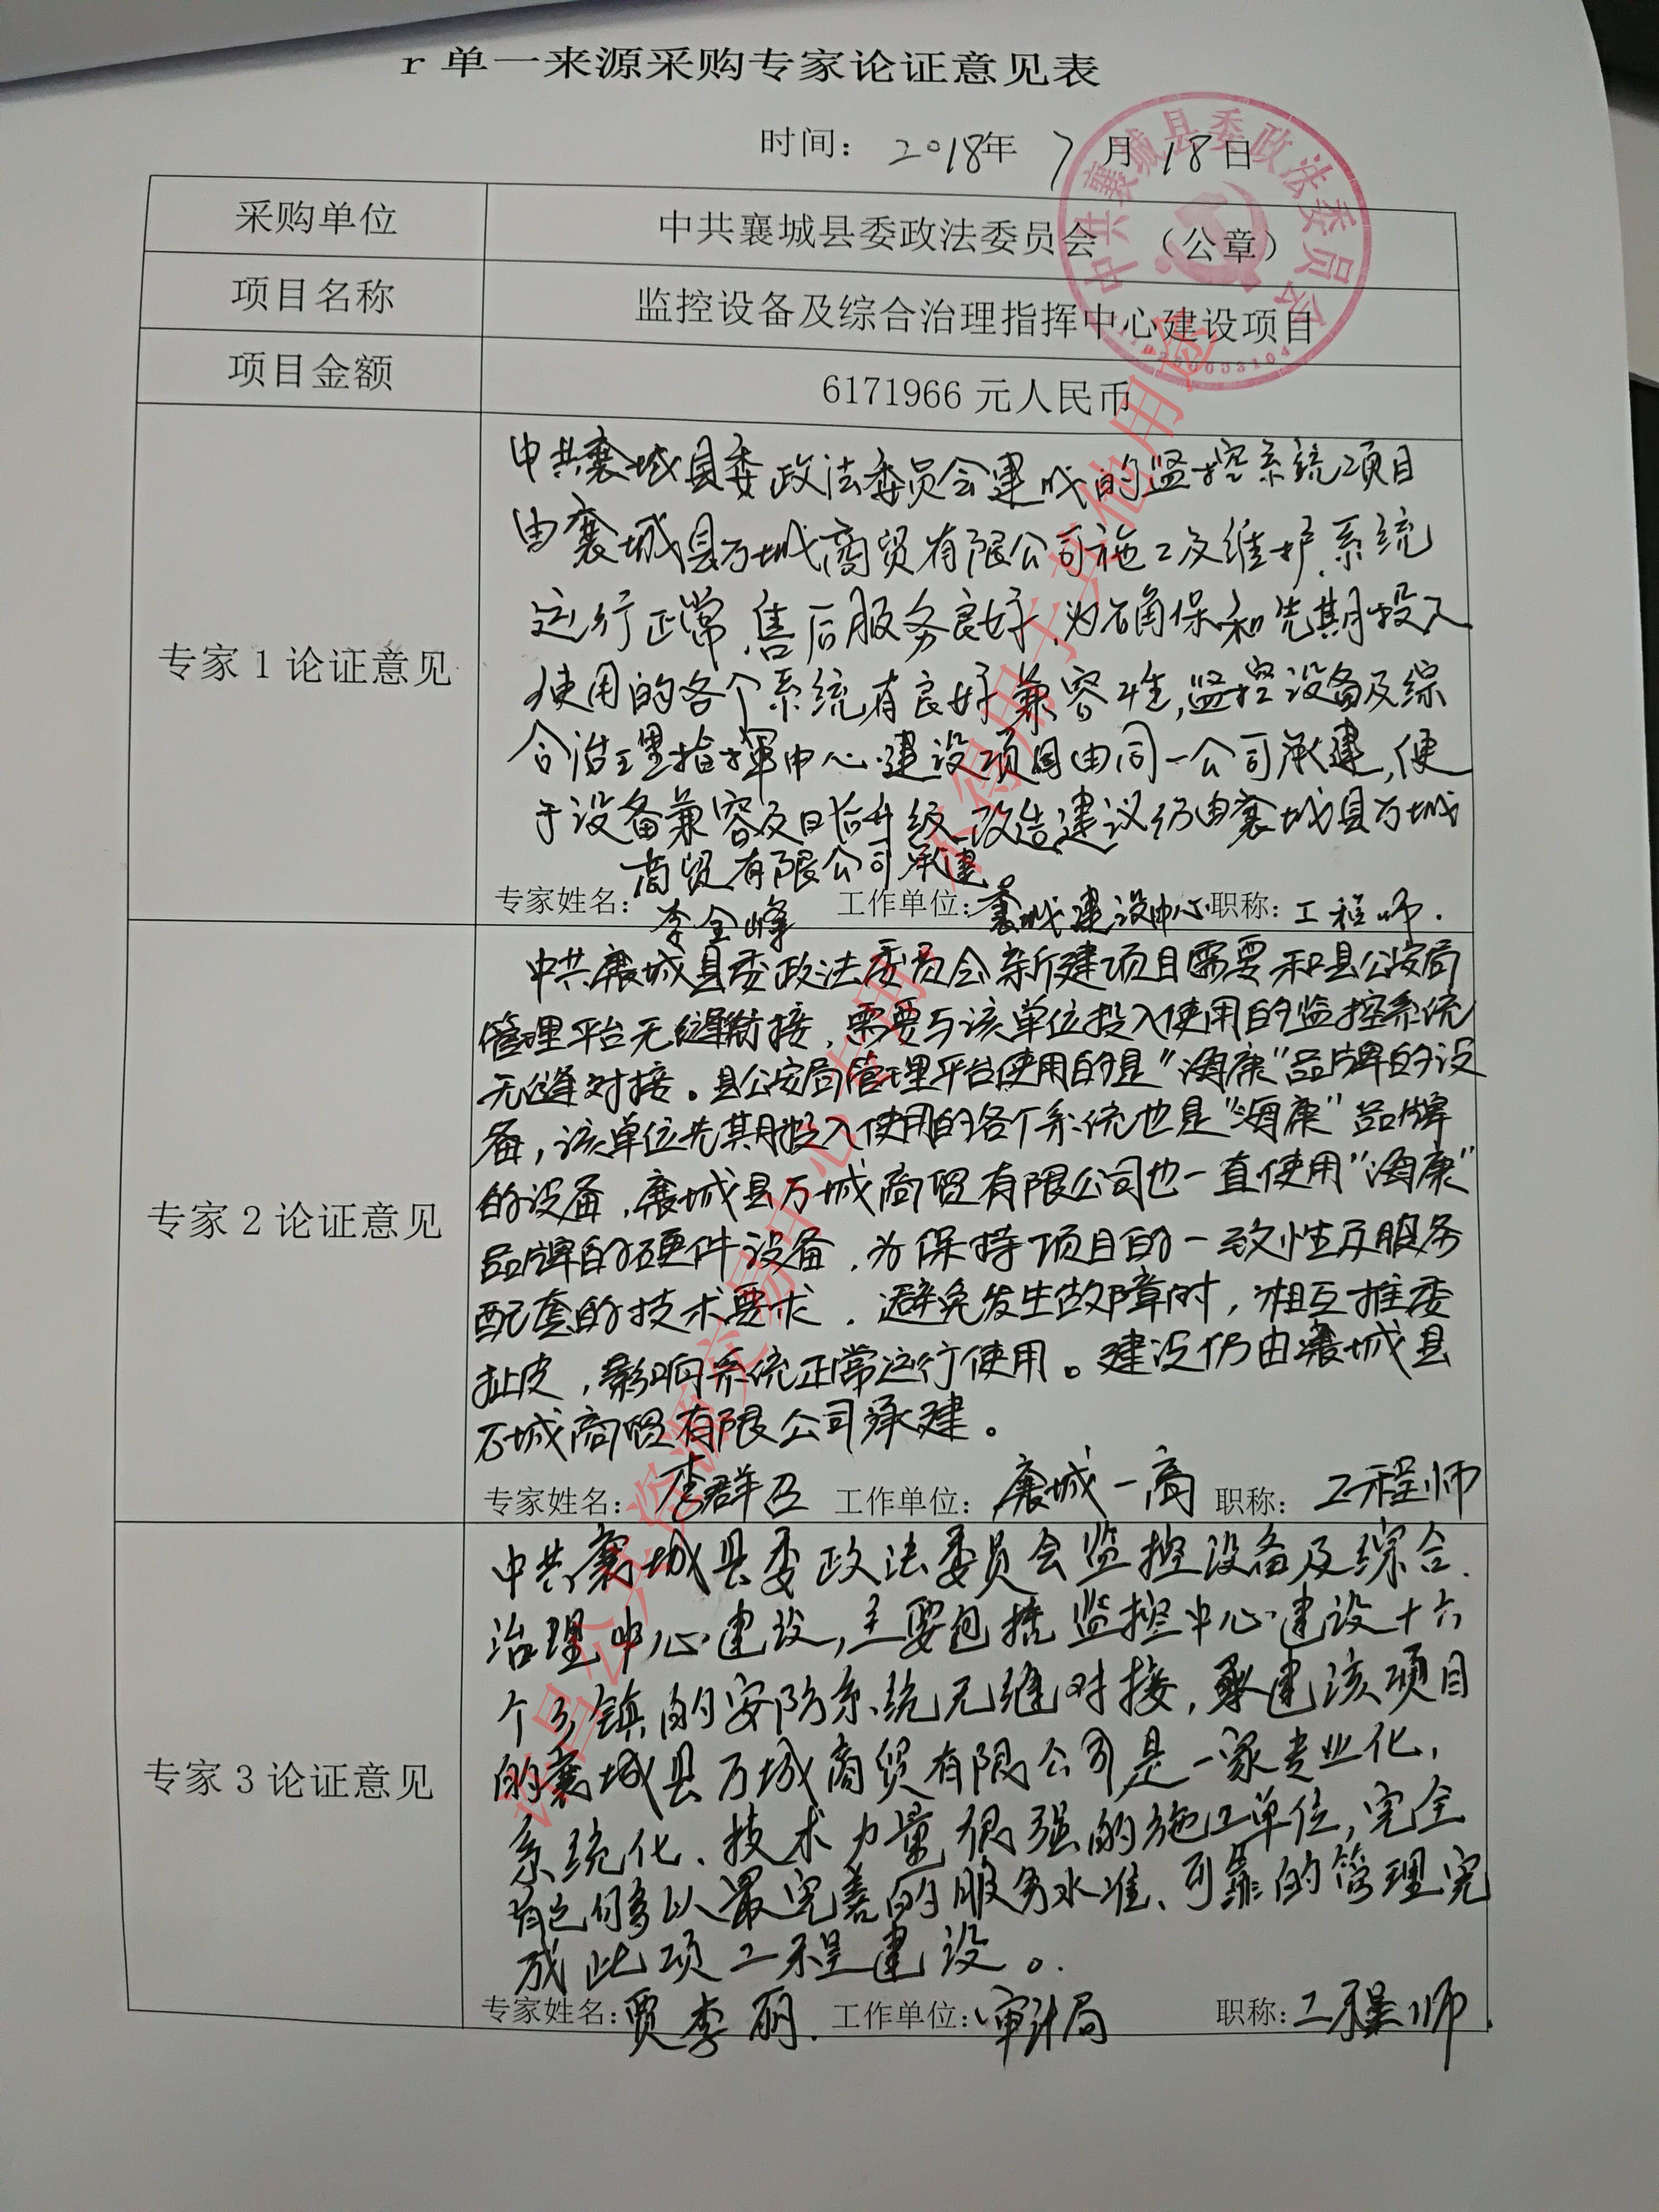 r 单一来源采购专家论证意见表
时间： 2018年 7 月 18日
采购单位 中共襄城县委政法委员会 （公章）
项目名称 监控设备及综合治理指挥中心建设项目
项目金额 6171966 元人民币
中共襄城县委政法委员会
专家 1 论证意见
中共襄城县委政法委员会建成的监控系统项目
由襄城县万城商贸有限公司施工及维护，系统
运行正常，售后服务良好，为确保和先期投入
使用的各个系统有良好兼容性，监控设备及综
合治理指挥中心建设项目由同一公司承建，便
于设备兼容及日后升级改造建议仍由襄城县万城
商贸有限公司承建。
专家姓名： 李全峰 工作单位：襄城建设中心 职称：工程师．
专家 2 论证意见
中共襄城县委政法委员会新建项目需要和县公安局
管理平台无缝衔接，需要与该单位投入使用的监控系统
无缝对接。县公安局管理平台使用的是“海康”品牌的设
备，该单位先期投入使用的各个系统也是“海康”品牌
的设备，襄城县万城商贸有限公司也一直使用“海康”
品牌的硬件设备，为保持项目的一致性及服务
配套的技术要求，避免发生故障时，相互推委
扯皮，影响系统正常运行使用。建议仍由襄城县
万城商贸有限公司承建。
专家姓名： 李群 工作单位： 襄城一高 职称： 工程师
专家 3 论证意见
中共襄城县委政法委员会监控设备及综合
治理中心建设，主要包括监控中心建设十六
个乡镇的安防系统无缝对接，承建该项目
的襄城县万城商贸有限公司是一家专业化，
系统化、技术力量很强的施工单位，完全
能够以最完善的服务水准、可靠的管理完
成此项工程建设。
专家姓名：贾李丽． 工作单位：审计局 职称：工程师．
许昌公共资源交易中心专用，不得用于其他用途